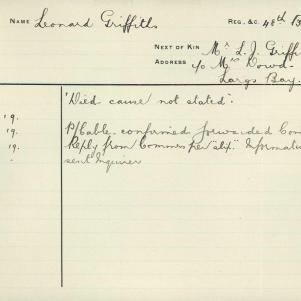 NAME Leonard Griffiths REG. &C. 48th B
NEXT OF KIN Mr L. J. Griff
ADDRESS c/o Mrs Dowd.
Largs Bay.
"Died cause not stated".
19.
19. P/Cable. confirmed. forwarded Com
19. Reply from Commns per "alix". Informati
sent Inquirer